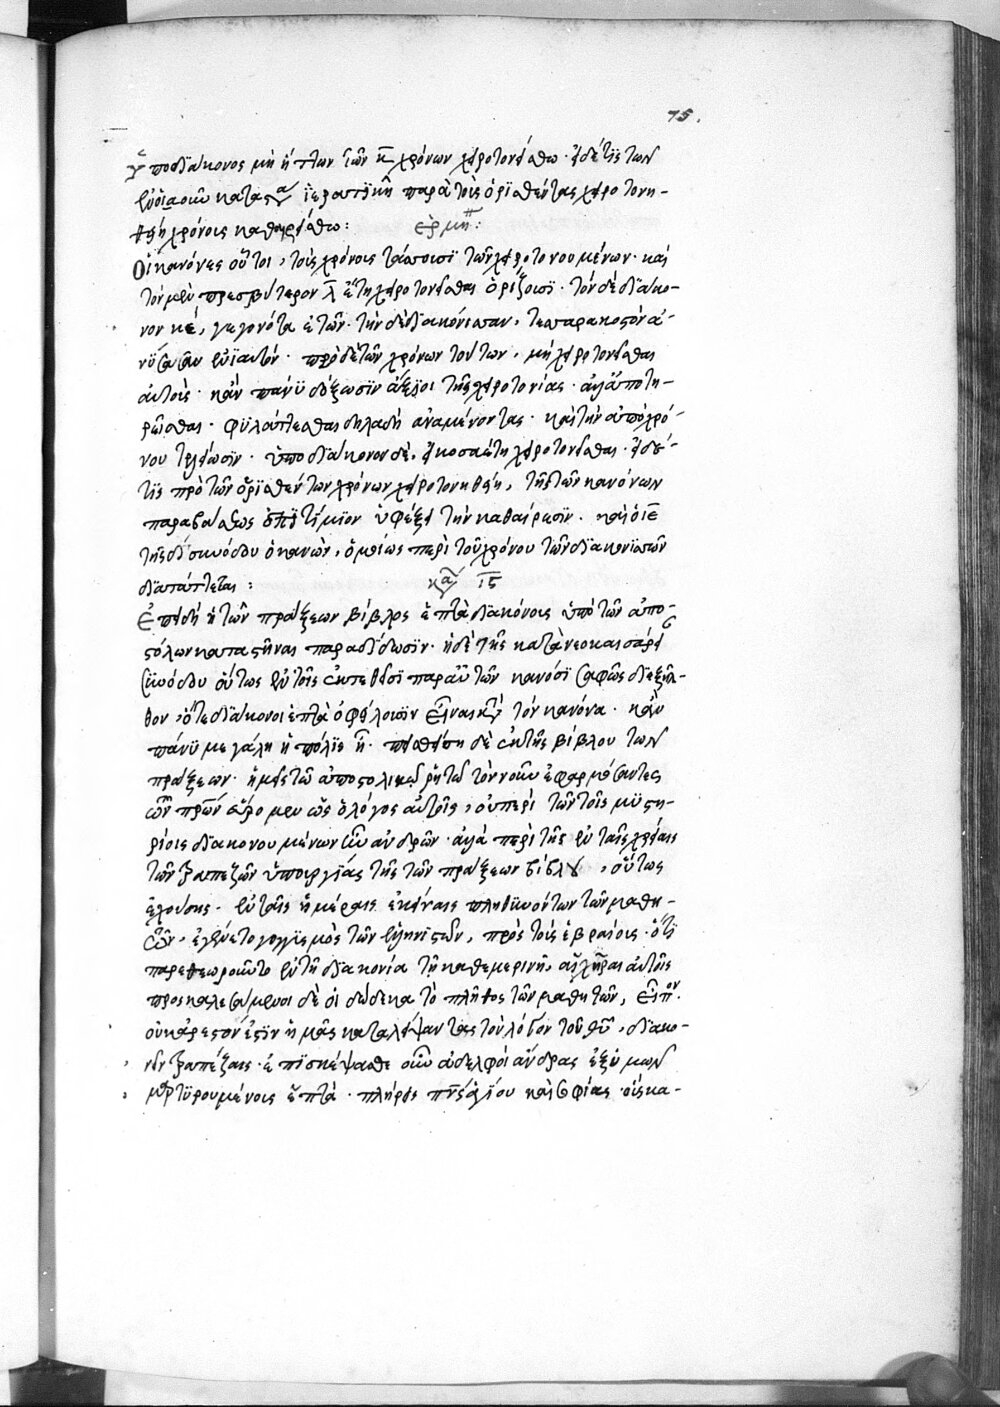 75.
Ὑποδιάκονος μὴ ἥττων τῶν κ̅ χρόνων χειροτονείσθω· εἰ δέ τις τῶν
ἐν οἱαοῦν καταστάσει ἱερατικῇ παρὰ τοὺς ὁρισθέντας χειροτονη-
θείη χρόνους καθαιρείσθω: ἑρμη:
Οἱ κανόνες οὗτοι, τοὺς χρόνους τάττουσι τῶν χειροτονουμένων· καὶ
τὸν μὲν πρεσβύτερον λ̅ ἔτη χειροτονεῖσθαι ὁρίζουσι· τὸν δὲ διάκο-
νον κέ, γεγονότα ἐτῶν· τὴν δὲ διακόνισσαν, τεσσαρακοστὸν ἀ-
νύσασαν ἐνιαυτόν· πρὸ δὲ τῶν χρόνων τούτων, μὴ χειροτονεῖσθαι
αὐτούς· κἂν πάνυ δόξωσιν ἄξιοι τῆς χειροτονίας· ἀλλ' ἀποτη-
ρεῖσθαι· φυλάττεσθαι δηλαδὴ ἀναμένοντας· καὶ τὴν ἀπὸ χρό-
νου τελείωσιν· ὑποδιάκονον δὲ, εἰκοσαέτη χειροτονεῖσθαι· εἰ δέ
τις πρὸ τῶν ὁρισθέντων χρόνων χειροτονηθείη, τῆς τῶν κανόνων
παραβάσεως ἐπιτίμιον ὑφέξει τὴν καθαίρεσιν. καὶ ὁ ιε̅
τῆς δ' συνόδου ὁ κανών, ὁμοίως περὶ τοῦ χρόνου τῶν διακονισσῶν
διατάττεται: κα ις̅
Ἐπειδὴ ἡ τῶν πράξεων βίβλος ἑπτὰ διακόνους ὑπὸ τῶν ἀπο-
στόλων καταστῆναι παραδίδωσιν· ἡ δὲ τῆς κατὰ νεοκαισάρει
συνόδου οὕτως ἐν τοῖς ἐκτεθεῖσι παρ' αὐτῶν κανόσι σαφῶς διεξῆλ-
θον, ὅτι διάκονοι ἑπτὰ ὀφείλουσιν εἶναι κατὰ τὸν κανόνα· κἂν
πάνυ μεγάλη ἡ πόλις ᾖ· πεισθείση δὲ ἐκ τῆς βίβλου τῶν
πράξεων· ἡμεῖς τῷ ἀποστολικῷ ῥητῷ τὸν νοῦν ἐφαρμόσαντες
τῶν πρων εὕρομεν ὡς ὁ λόγος αὐτοῖς, οὐ περὶ τῶν τοῖς μυστη-
ρίοις διακονουμένων ἦν ἀνδρῶν· ἀλλὰ περὶ τῆς ἐν ταῖς χρείαις
τῶν τραπεζῶν ὑπουργίας τῆς τῶν πράξεων βίβλου, οὕτως
ἐχούσης· ἐν ταῖς ἡμέραις ἐκείναις πληθυνόντων τῶν μαθη-
τῶν, ἐγένετο γογγυσμὸς τῶν ἑλληνιστῶν, πρὸς τοὺς ἑβραίους· ὅτι
παρεθεωροῦντο ἐν τῇ διακονίᾳ τῇ καθεμερινῇ, αἱ χῆραι αὐτοῖς
προσκαλεσάμενοι δὲ οἱ δώδεκα τὸ πλῆθος τῶν μαθητῶν, εἶπον.
οὐκ ἀρεστόν ἐστιν ἡμᾶς καταλείψαντας τὸν λόγον τοῦ θυ, διακο-
νεῖν τραπέζαις· ἐπισκέψασθε οὖν ἀδελφοὶ ἄνδρας ἐξ ὑμῶν
μαρτυρουμένους ἑπτὰ· πλήρεις πνς ἁγίου καὶ σοφίας· οὓς κα-